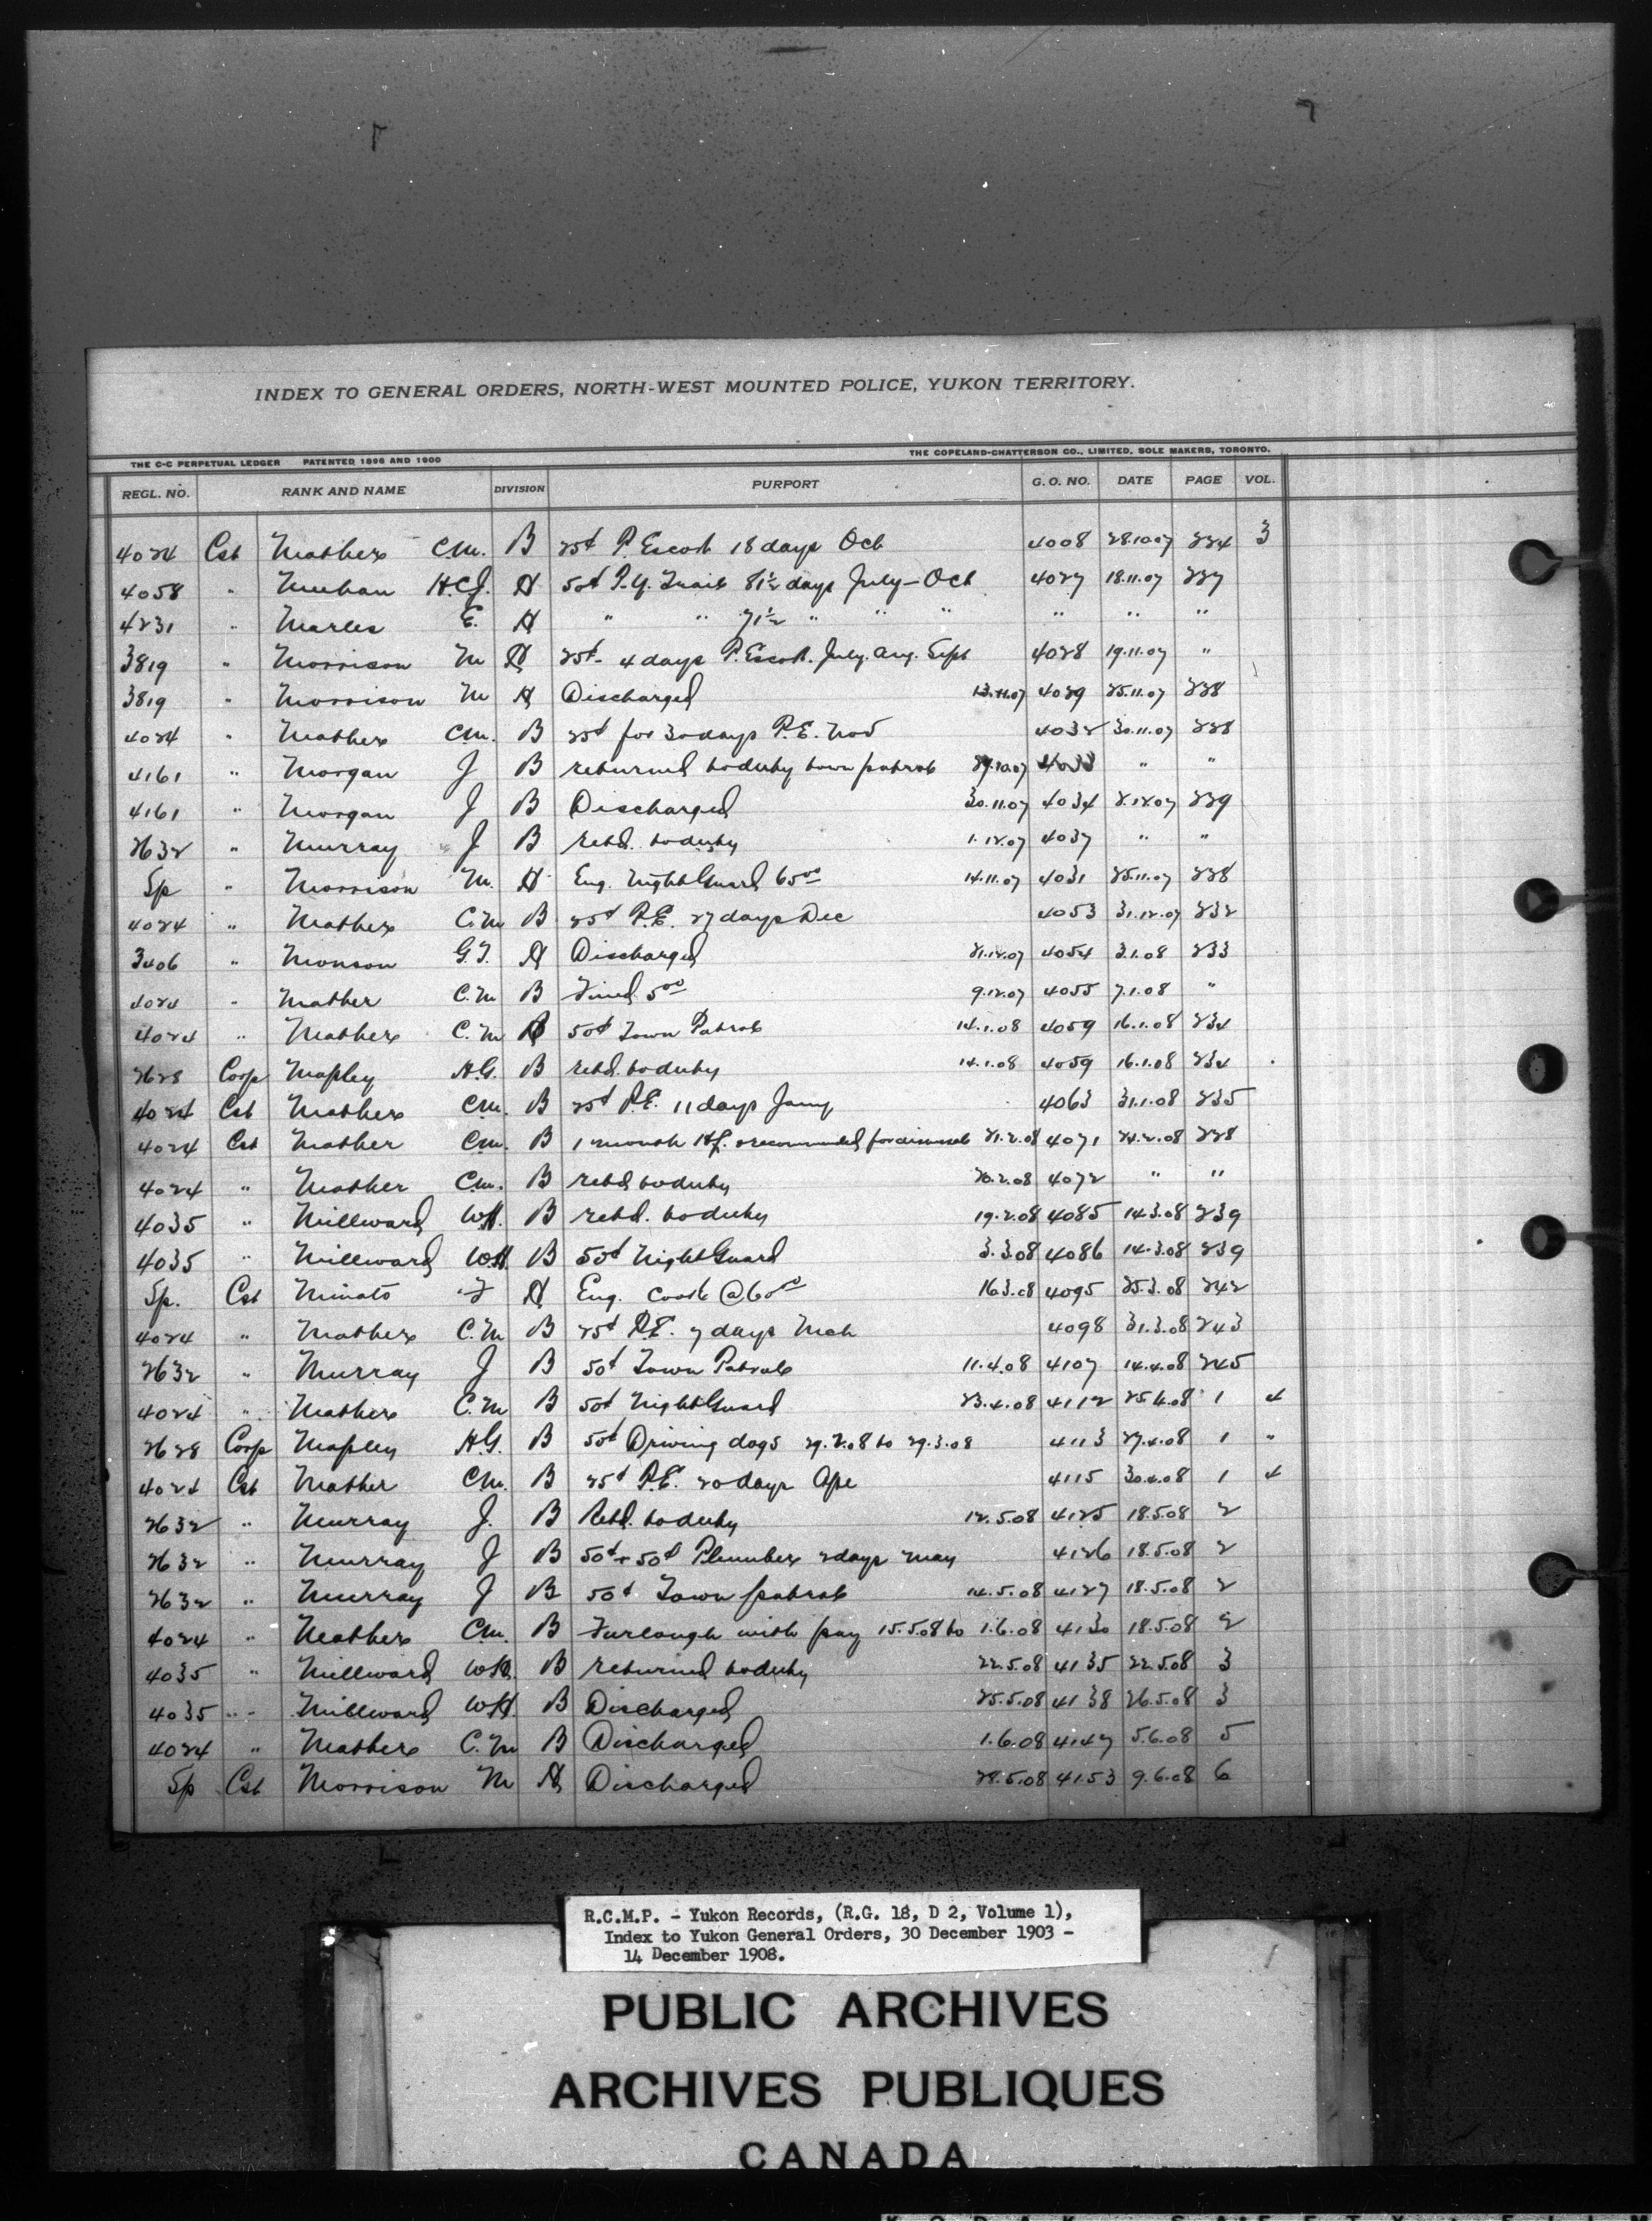 INDEX TO GENERAL ORDERS, NORTH-WEST MOUNTED POLICE, YUKON TERRITORY.
THE C-C PERPETUAL LEDGER PATENTED 1896 AND 1900 THE COPELAND-CHATTERSON CO., LIMITED, SOLE MAKERS, TORONTO.
REGL. NO. RANK AND NAME DIVISION PURPORT G. O. NO. DATE PAGE VOL.
4024 Cst Mathers C.M. B 25¢ P. Escort 18 days Oct 4008 28.10.07 224 3
4058 " H.C.J. H 50¢ P.Y. Trail 81½ days July-Oct 4027 18.11.07 227
4231 " Marles E. H " " 71½ " " " " " "
3819 " Morrison M H 25¢ 4 days P. Escort. July. Aug. Sept 4028 19.11.07 "
3819 " Morrison M H Discharged 13.11.07 4029 25.11.07 228
4024 " Mathers C.M. B 25¢ for 30 days P.E. Nov 4032 30.11.07 228
4161 " Morgan J B returned to duty town patrol 29.10.07 4033 " "
4161 " Morgan J B Discharged 30.11.07 4034 2.12.07 229
2632 " Murray J B retd. to duty 1.12.07 4037 " "
Sp " Morrison M. H Eng. Night Guard 65°° 14.11.07 4031 25.11.07 228
4024 " Mathers C.M B 25¢ P.E. 27 days Dec 4053 31.12.07 232
3406 " Monson G.T. H Discharged 21.12.07 4054 3.1.08 233
4024 " Mather C.M B Fined 5°° 9.12.07 4055 7.1.08 "
4024 " Mathers C.M B 50¢ Town Patrol 14.1.08 4059 16.1.08 234
2628 Corp Mapley H.G. B retd. to duty 14.1.08 4059 16.1.08 234
4024 Cst Mathers C.M. B 25¢ P.E. 11 days Jany 4063 31.1.08 235
4024 Cst Mather C.M. B 1 month H.L. & recommended for dismissal 21.2.08 4071 24.2.08 228
4024 " Mather C.M. B retd to duty 20.2.08 4072 " "
4035 " Millward W.H. B retd. to duty 19.2.08 4085 14.3.08 239
4035 " Millward W.H B 50¢ Night Guard 3.3.08 4086 14.3.08 239
Sp. Cst Minato F H Eng. Cook @ 60°° 16.3.08 4095 25.3.08 242
4024 " Mathers C.M B 25¢ P.E. 7 days Mch 4098 31.3.08 243
2632 " Murray J B 50¢ Town Patrol 11.4.08 4107 14.4.08 245
4024 " Mathers C.M B 50¢ Night Guard 23.4.08 4112 25.4.08 1 4
2628 Corp Mapley H.G. B 50¢ Driving dogs 29.2.08 to 29.3.08 4113 27.4.08 1 "
4024 Cst Mather C.M. B 25¢ P.E. 20 days Apl 4115 30.4.08 1 4
2632 " Murray J. B Retd. to duty 12.5.08 4125 18.5.08 2
2632 " Murray J B 50¢ + 50¢ Plumber 2 days May 4126 18.5.08 2
2632 " Murray J B 50¢ Town patrol 14.5.08 4127 18.5.08 2
4024 " Mathers C.M. B Furlough with pay 15.5.08 to 1.6.08 4130 18.5.08 2
4035 " Millward W.H. B returned to duty 22.5.08 4135 22.5.08 3
4035 " Millward W.H. B Discharged 25.5.08 4138 26.5.08 3
4024 " Mathers C.M B Discharged 1.6.08 4147 5.6.08 5
Sp Cst Morrison M H Discharged 28.5.08 4153 9.6.08 6
R.C.M.P. - Yukon Records, (R.G. 18, D 2, Volume 1),
Index to Yukon General Orders, 30 December 1903 -
14 December 1908.
PUBLIC ARCHIVES
ARCHIVES PUBLIQUES
CANADA